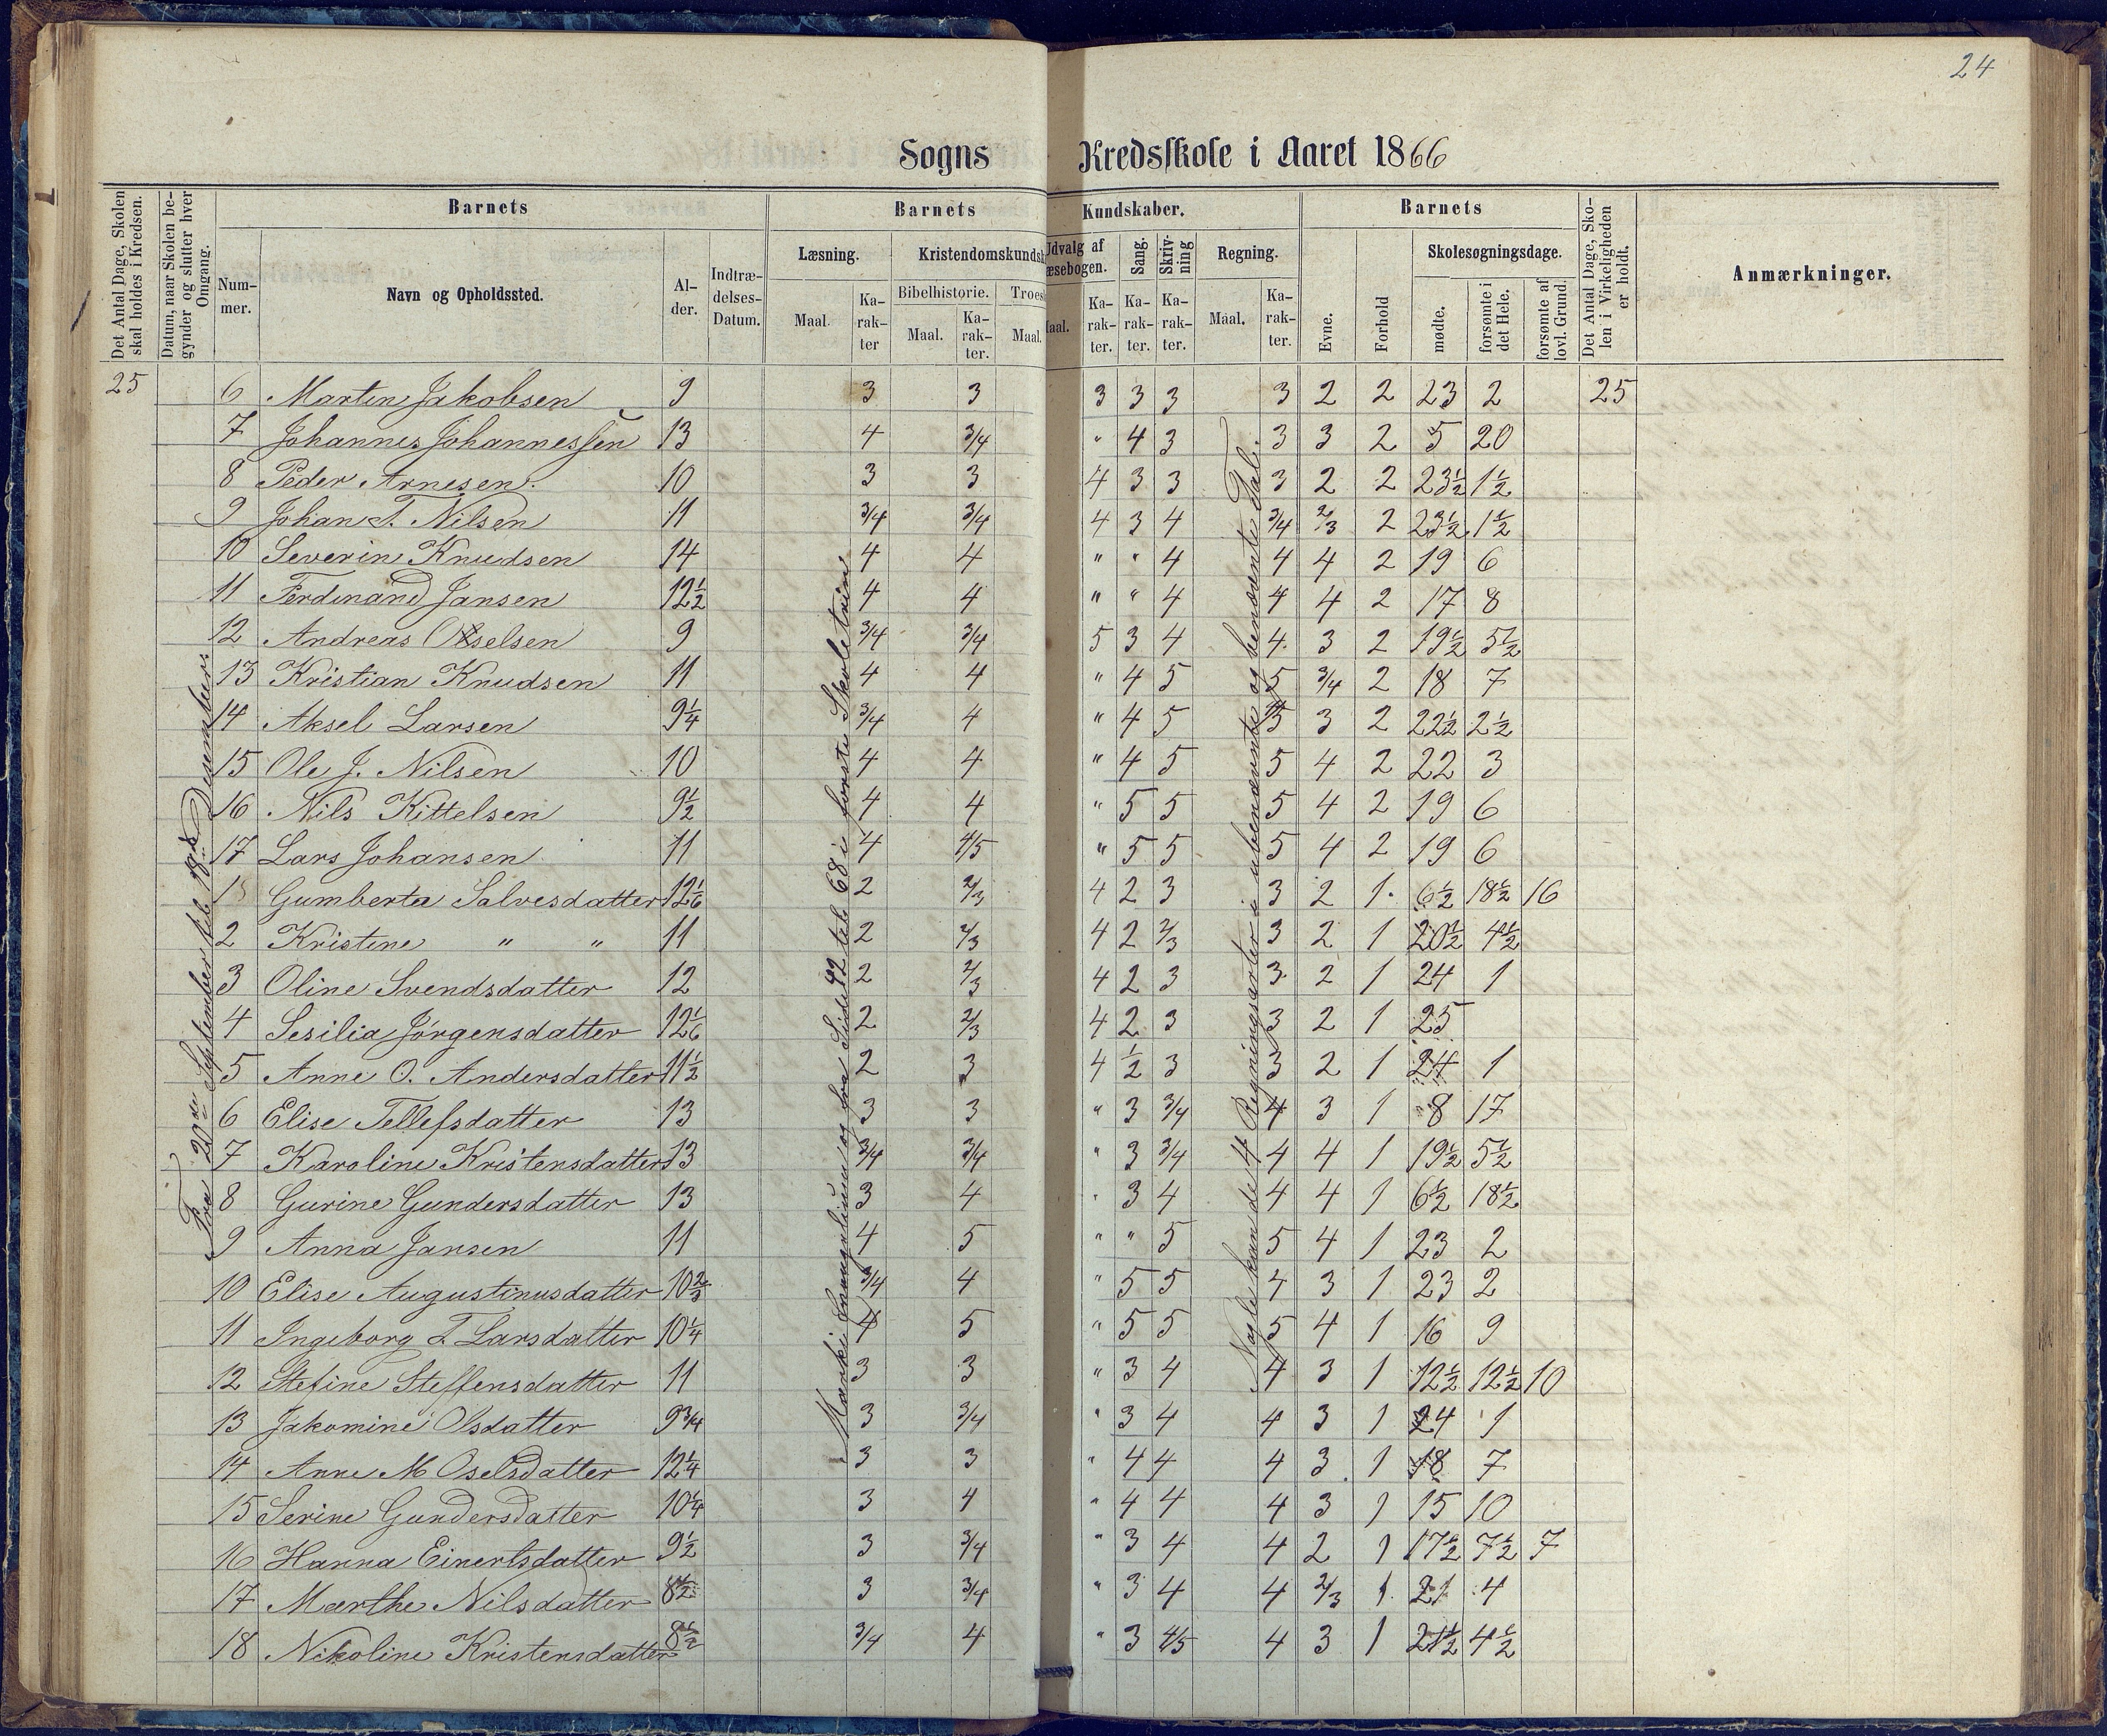 24
Sogns Kredsskole i Aaret 1866
Det Antal Dage, Skolen skal holdes i Kredsen.
Datum, naar Skolen begynder og slutter hver Omgang.
Barnets
Nummer.
Navn og Opholdssted.
Alder.
Indtrædelses-Datum.
Barnets Kundskaber.
Læsning.
Maal.
Karakter
Kristendomskundsk
Bibelhistorie.
Maal.
Karakter.
Troes
Maal.
Udvalg af
æsebogen.
aal.
Karakter.
Sang.
Karakter.
Skrivning
Karakter.
Regning.
Maal.
Karakter.
Barnets
Evne.
Forhold
Skolesøgningsdage.
mødte.
forsømte i det Hele.
forsømte af lovl. Grund.
Det Antal Dage, Skolen i Virkeligheden er holdt.
Anmærkninger.
25 6 Martin Jakobsen 9 3 3 3 3 3 3 2 2 23 2 25
7 Johannes Johannessen 13 4 3/4 " 4 3 3 3 2 5 20
8 Peder Arnesen. 10 3 3 4 3 3 3 2 2 23½ 1½
9 Johan T. Nilsen 11 3/4 3/4 4 3 4 3/4 2/3 2 23½ 1½
10 Severin Knudsen 14 4 4 " " 4 4 4 2 19 6
11 Ferdinand Jansen 12½ 4 4 " " 4 4 4 2 17 8
12 Andreas Oselsen 9 3/4 3/4 5 3 4 4 3 2 19½ 5½
13 Kristian Knudsen 11 4 4 " 4 5 5 3/4 2 18 7
14 Aksel Larsen 9¼ 3/4 4 " 4 5 5 3 2 22½ 2½
15 Ole J. Nilsen 10 4 4 " 4 5 5 4 2 22 3
16 Nils Kittelsen 9½ 4 4 " 5 5 5 4 2 19 6
17 Lars Johansen 11 4 4/5 " 5 5 5 4 2 19 6
1 Gumberta Salvesdatter 12 1/6 2 2/3 4 2 3 3 2 1 6½ 18½ 16
2 Kristine " " 11 2 2/3 4 2 2/3 3 2 1 20½ 4½
3 Oline Svendsdatter 12 2 2/3 4 2 3 3 2 1 24 1
4 Sesilia Jørgensdatter 12 1/6 2 2/3 4 2 3 3 2 1 25
5 Anne O. Andersdatter 11½ 2 3 4 1/2 3 3 2 1 24 1
6 Elise Tellefsdatter 13 3 3 " 3 3/4 4 3 1 8 17
7 Karoline Kristensdatter 13 3/4 3/4 " 3 3/4 4 4 1 19½ 5½
8 Gurine Gundersdatter 13 3 4 " 3 4 4 4 1 6½ 18½
9 Anna Jansen 11 4 5 " " 5 5 4 1 23 2
10 Elise Augustinusdatter 10 2/3 3/4 4 " 5 5 4 3 1 23 2
11 Ingeborg T Larsdatter 10¼ 4 5 " 5 5 5 4 1 16 9
12 Stefine Steffensdatter 11 3 3 " 3 4 4 3 1 12½ 12½ 10
13 Jakomine Olsdatter 9¾ 3 3/4 " 3 4 4 3 1 24 1
14 Anne M Oselsdatter 12¼ 3 3 " 4 4 4 3 1 18 7
15 Serine Gundersdatter 10¼ 3 4 " 4 4 4 3 1 15 10
16 Hanna Einertsdatter 9½ 3 3/4 " 3 4 4 2 1 17½ 7½ 7
17 Marthe Nilsdatter 8½ 3 3/4 " 3 4 4 2/3 1 21 4
18 Nikoline Kristensdatter 8½ 3/4 4 " 3 4/5 4 3 1 21½ 4½
Fra 20de September til 18de Desember
Marki Evangelium og fra Side 42 til 68 i første Skoletrin
Nogle kan de 4 Regningsarter i ubenævnte og benævnte Tal.